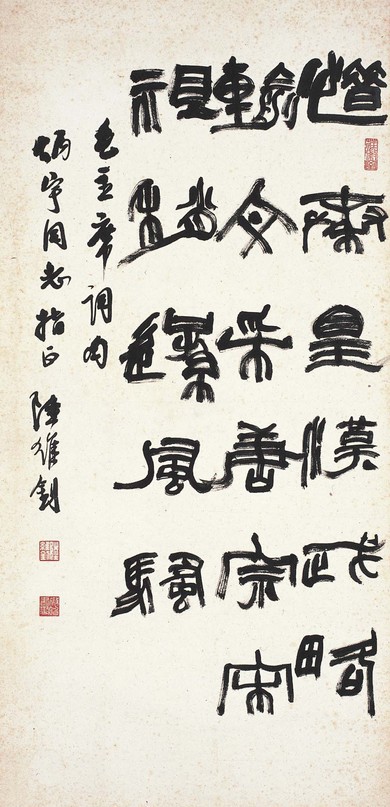 惜秦皇漢武略
輸文采唐宗宋
祖稍遜風騷
毛主席詞句
炳宇同志指正 陸維釗